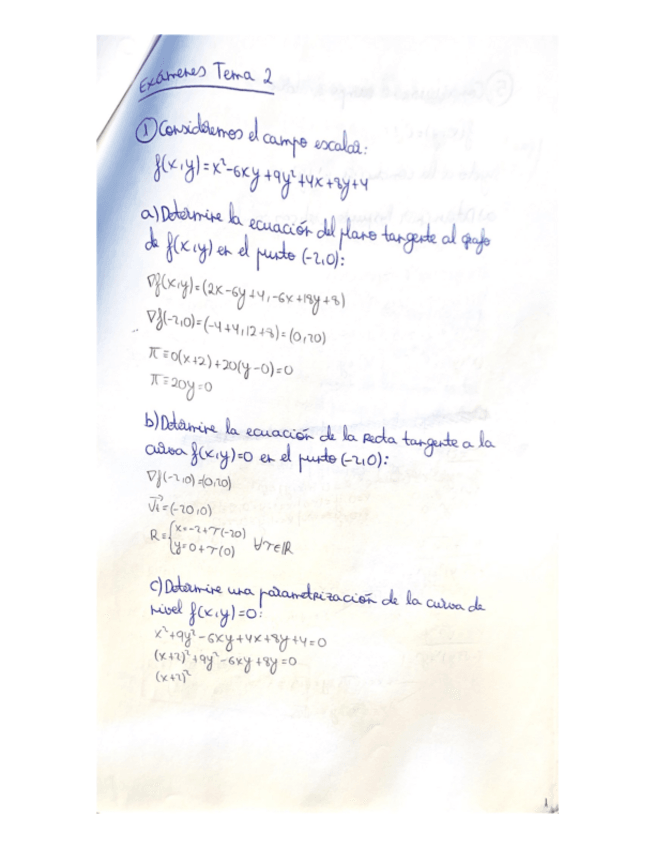 Exámenes Tema 2
① Consideremos el campo escalar:
f(x,y)=x²-6xy+9y²+4x+8y+4
a) Determine la ecuación del plano tangente al grafo
de f(x,y) en el punto (-2,0):
∇f(x,y)=(2x-6y+4,-6x+18y+8)
∇f(-2,0)=(-4+4,12+8)=(0,20)
π≡0(x+2)+20(y-0)=0
π≡20y=0
b) Determine la ecuación de la recta tangente a la
curva f(x,y)=0 en el punto (-2,0):
∇f(-2,0)=(0,20)
=(-20,0)
R≡{x=-2+τ(-20)
y=0+τ(0) ∀τ∈ℝ
c) Determine una parametrización de la curva de
nivel f(x,y)=0:
x²+9y²-6xy+4x+8y+4=0
(x+2)²+9y²-6xy+8y=0
(x+2)²
1